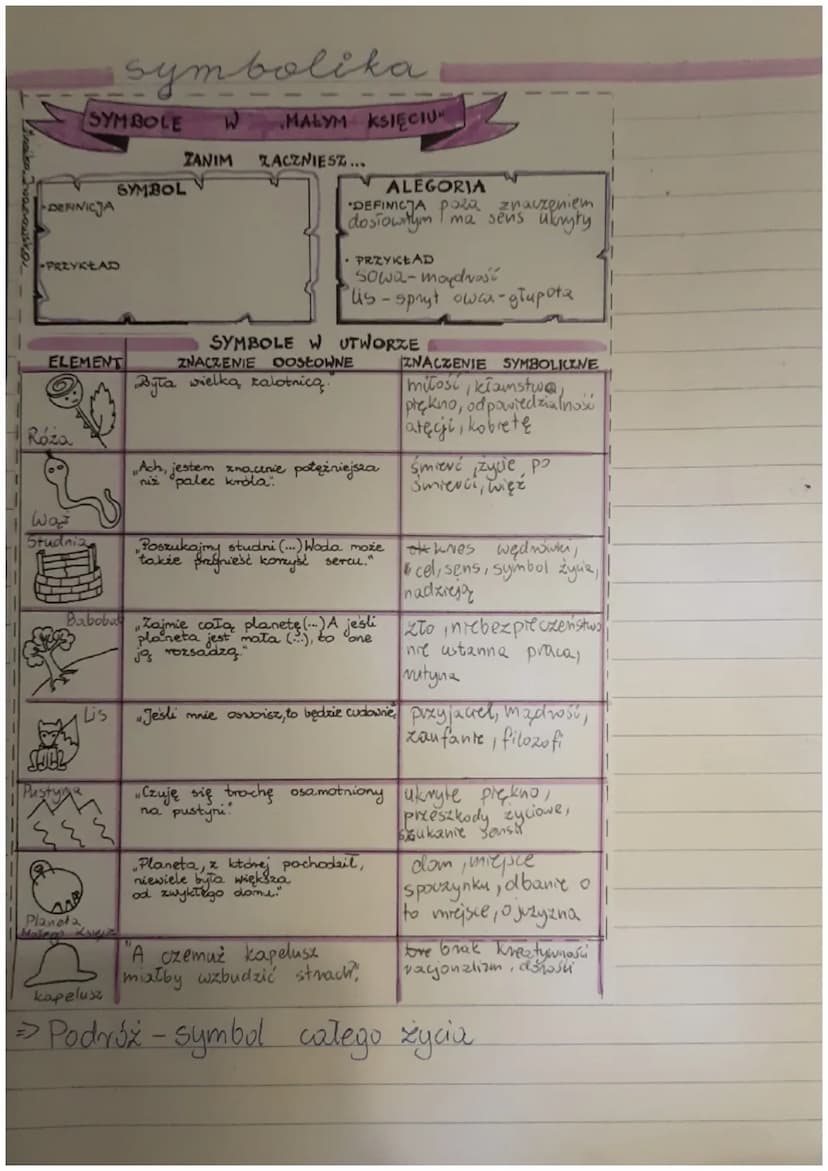 symbolika
SYMBOLE W „MAŁYM KSIĘCIU"
ZANIM ZACZNIESZ...
SYMBOL
•DEFINICJA
•PRZYKŁAD
ALEGORIA
•DEFINICJA poza znaczeniem
dosłownym ma sens ukryty
• PRZYKŁAD
sowa-mądrość
lis-spryt owca-głupota
SYMBOLE W UTWORZE
ELEMENT ZNACZENIE DOSŁOWNE ZNACZENIE SYMBOLICZNE
Róża
„Była wielką zalotnicą."
miłość, kłamstwa,
piękno, odpowiedzialność
kobietę
Wąż
„Ach, jestem znacznie potężniejsza
niż palec króla".
śmierć, życie po
śmierci, więź
Studnia
„Poszukajmy studni (...) Woda może
także przynieść korzyść sercu."
kres wędrówki,
cel, sens, symbol życia,
nadzieją
Babobab
„Zajmie całą planetę(...) A jeśli
planeta jest mała (...), to one
ją rozsadzą."
zło, niebezpieczeństwo
nie ustanna praca,
rutyna
Lis
„Jeśli mnie oswoisz, to będzie cudownie,
przyjaciel, mądrość,
zaufanie, filozofi
Pustynia
„Czuję się trochę osamotniony
na pustyni."
ukryte piękno,
przeszkody życiowe,
szukanie sensu
Planeta
Małego Księcia
„Planeta, z której pochodził,
niewiele była większa
od zwykłego domu."
dom, miejsce
spoczynku, dbanie o
to miejsce, ojczyzna
kapelusz
"A czemuż kapelusz
miałby wzbudzić strach?"
brak kreatywności
racjonalizm, dorośli
=> Podróż - symbol całego życia